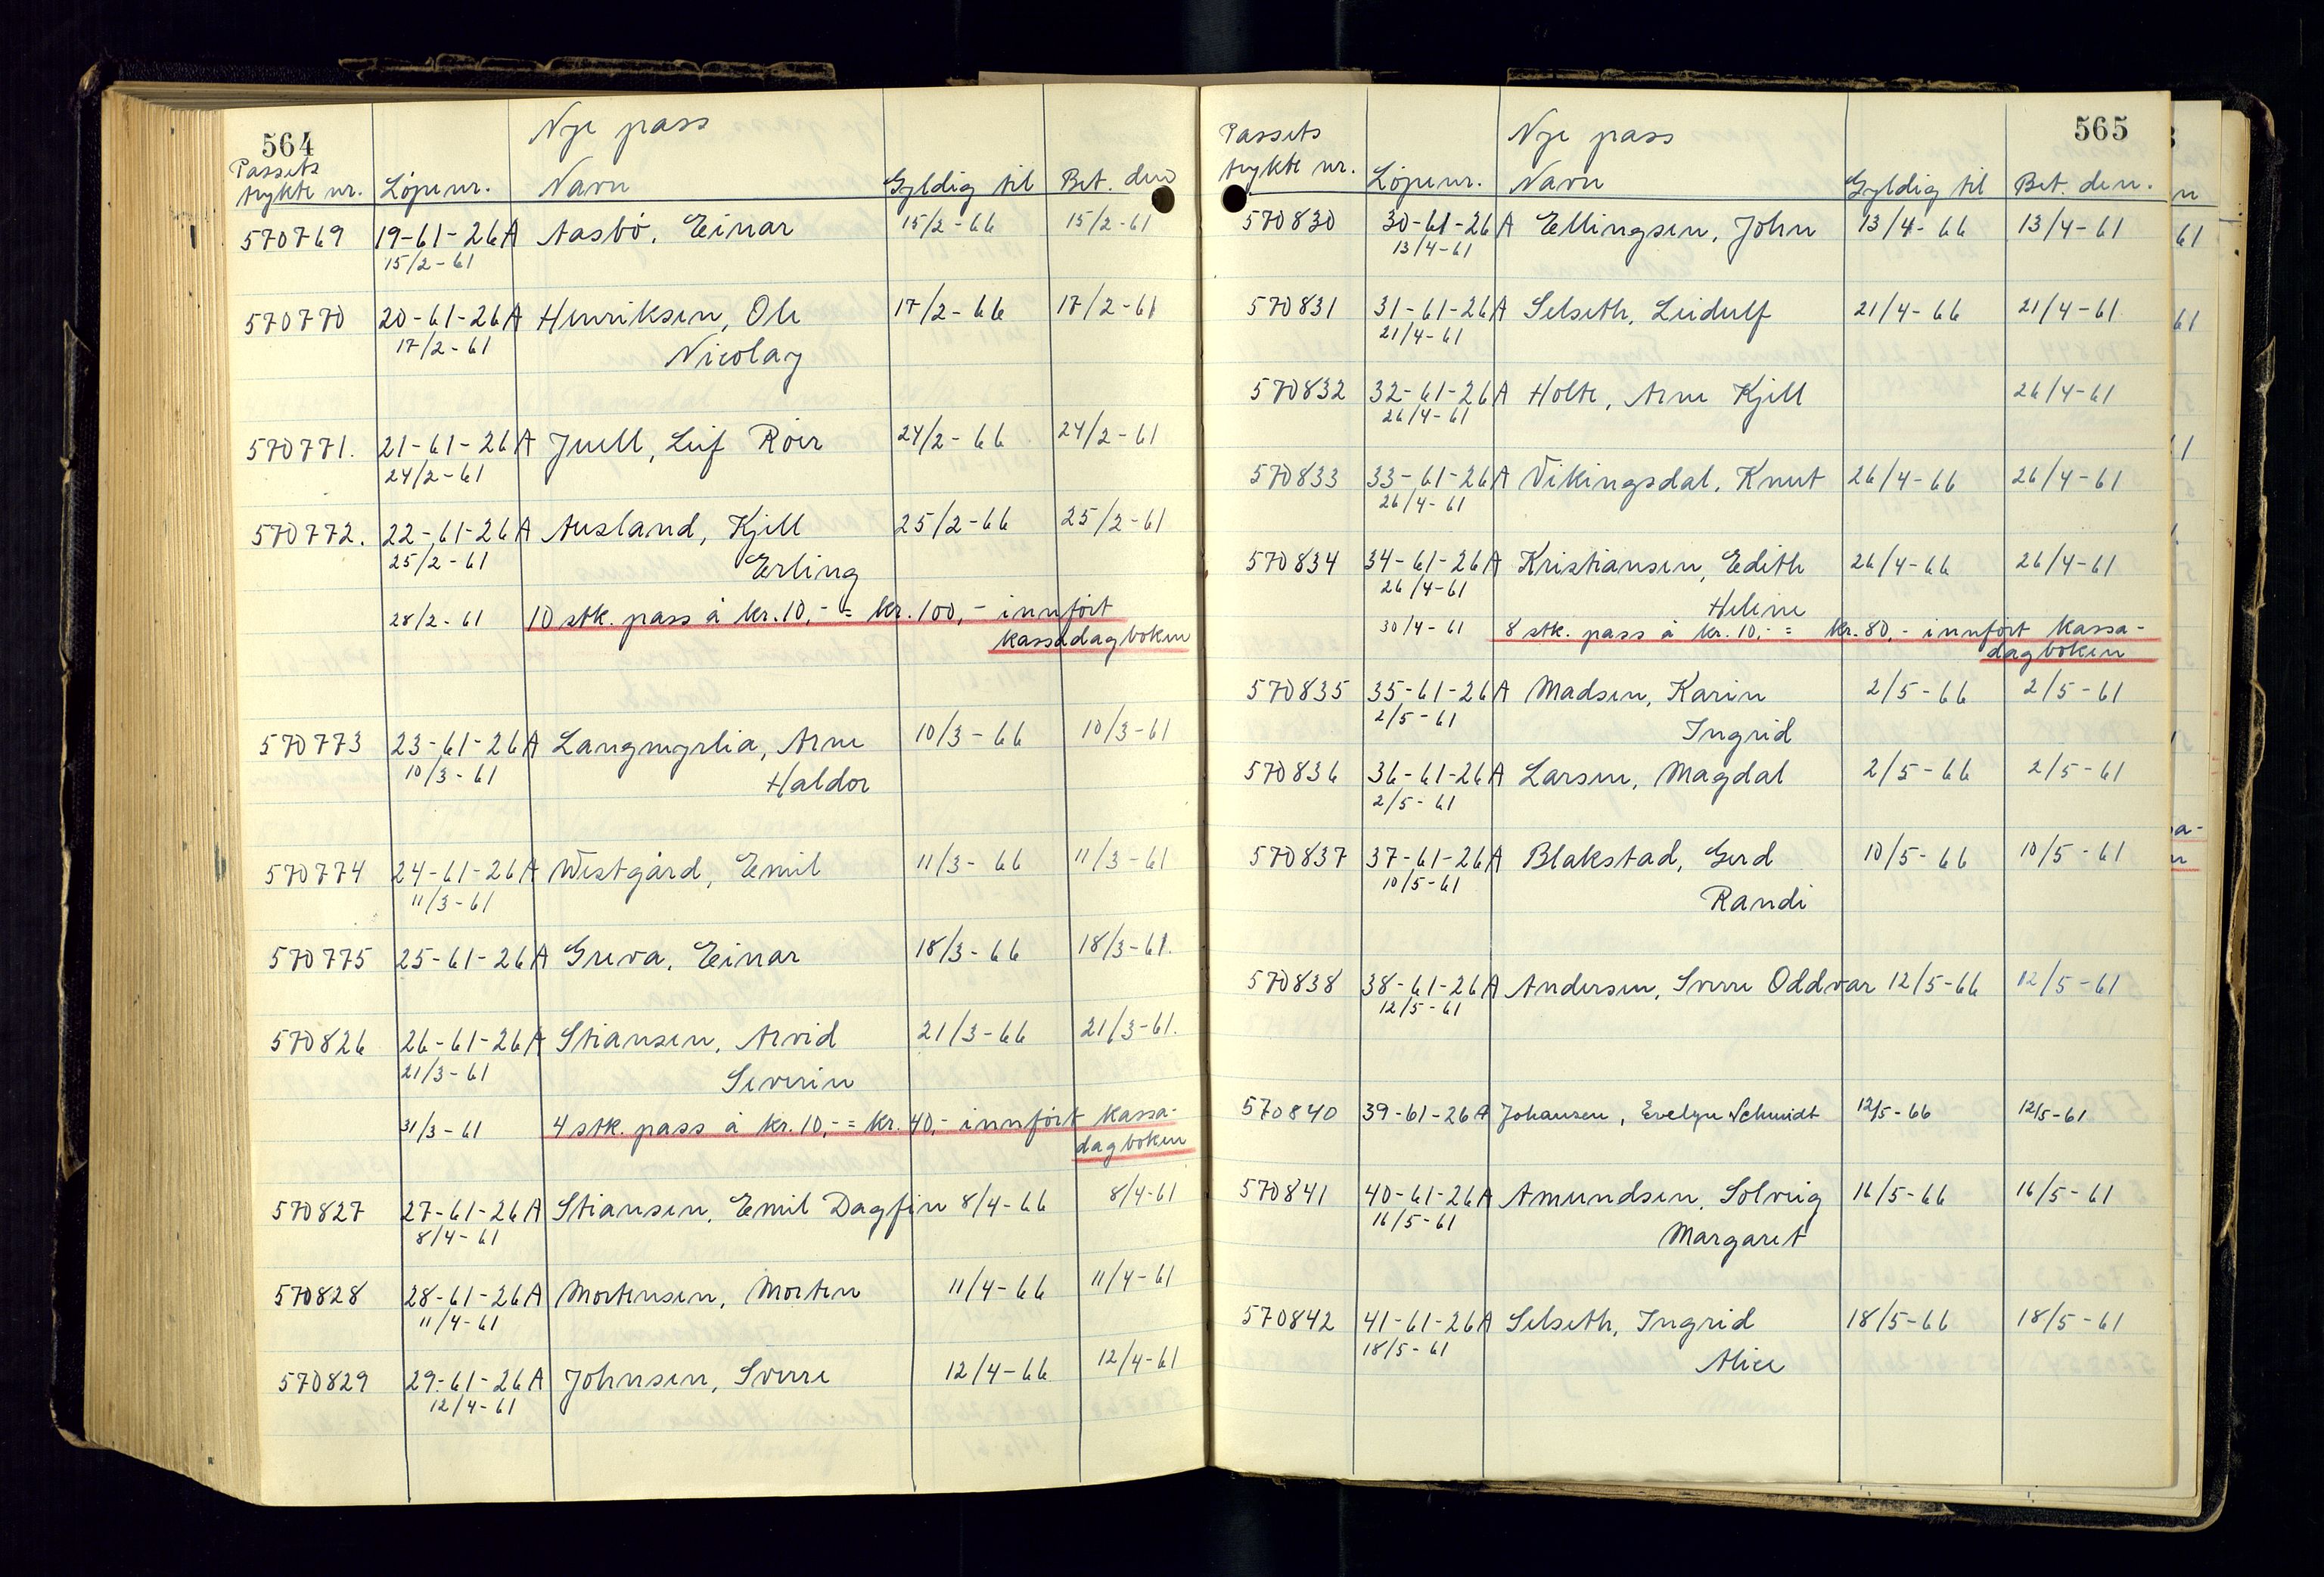 564
Nye pass
Passets
trykte nr. Löpenr. Navn Gyldig til Bet. den
570769 19-61-26A Aasbö, Einar 15/2-66 15/2-61
15/2-61
570770 20-61-26A Henriksen, Ole 17/2-66 17/2-61
17/2-61 Nicolay
570771. 21-61-26A Juell, Leif Röer 24/2-66 24/2-61
24/2-61
570772. 22-61-26A Ausland, Kjell 25/2-66 25/2-61
25/2-61 Erling
28/2-61 10 stk. pass à kr. 10,- = kr. 100,- innfört
kassadagboken
570773 23-61-26A Langmyrlia, Arne 10/3-66 10/3-61
10/3-61 Haldor
570774 24-61-26A Westgård, Emil 11/3-66 11/3-61
11/3-61
570775 25-61-26A Greva, Einar 18/3-66 18/3-61.
570826 26-61-26A Stiansen, Arvid 21/3-66 21/3-61.
21/3-61 Severin
31/3-61 4 stk. pass à kr. 10,- = kr. 40,- innfört kassa-
dagboken
570827 27-61-26A Stiansen, Emil Dagfin 8/4-66 8/4-61
8/4-61
570828 28-61-26A Mortensen, Morten 11/4-66 11/4-61
11/4-61
570829 29-61-26A Johnsen, Sverre 12/4-66 12/4-61
12/4-61
565
Passets Nye pass
trykte nr. Löpenr. Navn Gyldig til Bet. den.
570830 30-61-26A Ellingsen, John 13/4-66 13/4-61
13/4-61
570831 31-61-26A Selseth, Leidulf 21/4-66 21/4-61
21/4-61
570832 32-61-26A Holte, Arne Kjell 26/4-61
26/4-61
570833 33-61-26A Vikingsdal, Knut 26/4-66 26/4-61
26/4-61
570834 34-61-26A Kristiansen, Edith 26/4-66 26/4-61
26/4-61 Helene
30/4-61 8 stk. pass à kr. 10,- = kr. 80,- innfört kassa-
dagboken
570835 35-61-26A Madsen, Karin 2/5-66 2/5-61
2/5-61 Ingrid
570836 36-61-26A Larsen, Magdal 2/5-66 2/5-61
2/5-61
570837 37-61-26A Blakstad, Gerd 10/5-66 10/5-61
10/5-61 Randi
570838 38-61-26A Andersen, Sverre Oddvar 12/5-66 12/5-61
12/5-61
570840 39-61-26A Johansen, Evelyn Schmidt 12/5-66 12/5-61
570841 40-61-26A Amundsen, Solveig 16/5-66 16/5-61
16/5-61 Margaret
570842 41-61-26A Selseth, Ingrid 18/5-66 18/5-61
18/5-61 Alice